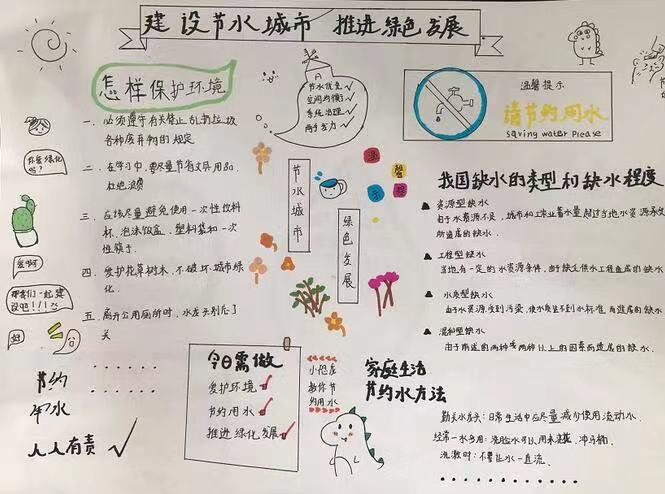 建设节水城市 推进绿色发展
怎样保护环境
一、必须遵守有关禁止乱扔垃圾
各种废弃物的规定
二、在学习中，要尽量节省文具用品
杜绝浪费
三、应该尽量避免使用一次性饮料
杯、泡沫饭盒、塑料袋和一次
性筷子.
四、爱护花草树木，不破坏城市绿
化.
五、离开公用厕所时，水龙头别忘了
关
你爱绿化
吗?
爱啊
那我们一起建
设吧!!!
好
节约
用水
人人有责
节水优先
空间均衡
系统治理
两手发力
节水城市
绿色发展
温馨提示
温馨提示
请节约用水
saving water Please
我国缺水的类型和缺水程度
资源型缺水
由于水资源不足，城市和工农业蓄水量超过当地水资源承受
所造成的缺水.
工程型缺水
当地有一定的水资源条件，由于缺少供水工程造成的缺水
水质型缺水
由于水资源受到污染，使水质达不到水标准而造成的缺水
混和型缺水
由于前述的两种或两种以上的因素而造成的缺水.
今日需做
爱护环境
节约用水
推进绿化发展
小恐龙
教你节
约用水
家庭生活
节约水方法
勤关水龙头：日常生活中应尽量减少使用流动水.
经常一水多用：洗脸水可以用来浇花、冲马桶.
洗漱时：不要让水一直流.